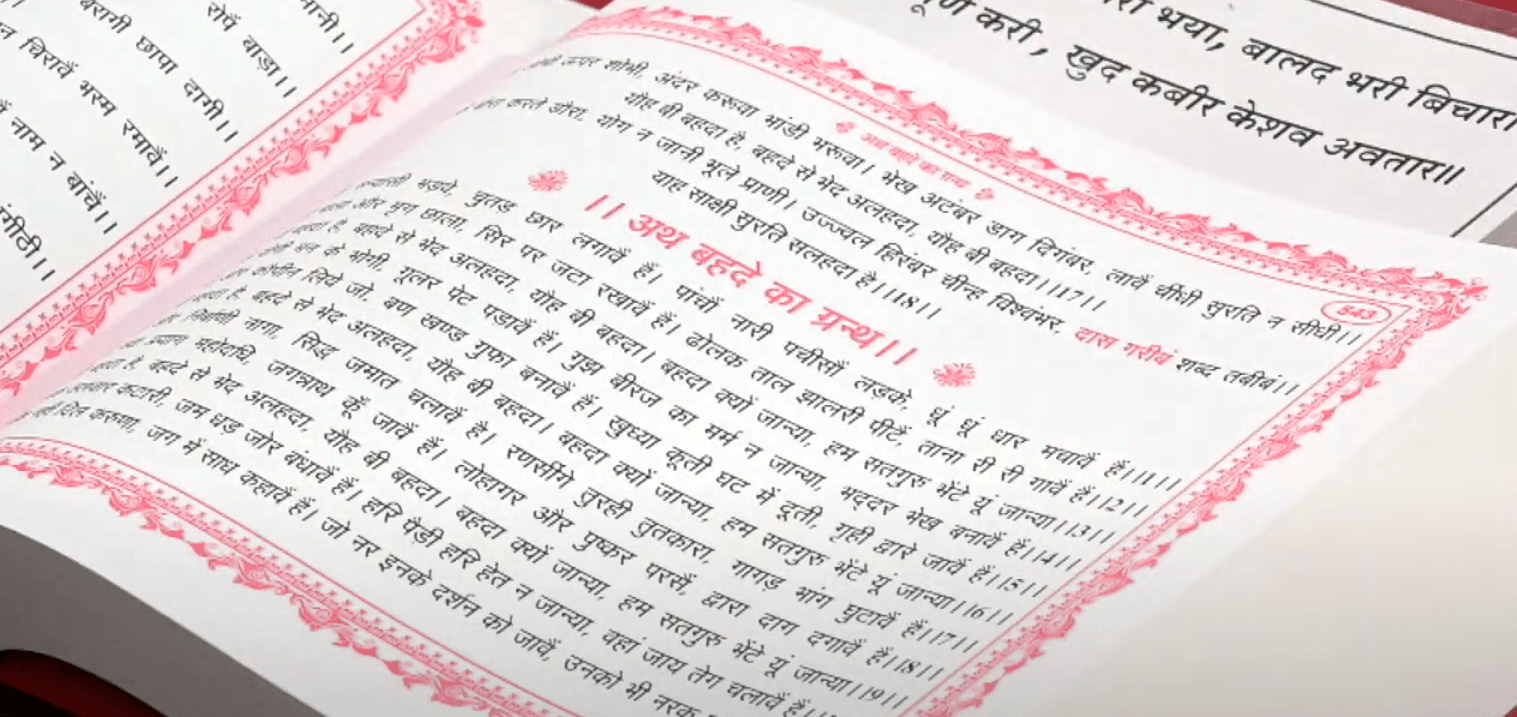 नानी।।
बैरागी छापा दागी।।
रोपैं बाड़ा।।
चिरावैं भस्म रमावैं।।
नाम न बांचैं।।
भया, बालद भरी बिचारा
करी, खुद कबीर केशव अवतार॥
643
ऊपर शोभी, अंदर करूवा भांडी भरूवा। भेख अटंबर डाग दिगंबर, लावैं धींधी सुरति न सीधी।।
यौह बी बहदा है, बहदे से भेद अलहदा, यौह बी बहदा।।17।।
करते डौरा, योग न जानी भूले प्राणी। उज्ज्वल हिरंबर चीन्ह विश्वंभर, दास गरीबं शब्द तबीबं।।
याह साक्षी सुरति सलहदा है।।18।।
।। अथ बहदे का ग्रन्थ।।
भड़वे, चुतड़ छार लगावैं हैं। पांचौं नारी पचीसौं लड़के, धूं धूं धार मचावैं हैं।।1।।
और मृग छाला, सिर पर जटा रखावैं हैं। ढोलक ताल झालरी पीटैं, ताना री री गावैं हैं।।2।।
है, बहदे से भेद अलहदा, यौह बी बहदा। बहदा क्यों जान्या, हम सतगुरु भेंटे यूं जान्या।।3।।
के भोगी, गूलर पेट पड़ावैं हैं। गुझ बीरज का मर्म न जान्या, भद्दर भेख बनावैं हैं।।4।।
कोपीन लिये जो, बण खण्ड गुफा बनावैं हैं। खुध्या कूती घट में दूती, गृही द्वारे जावैं हैं।।5।।
है, बहदे से भेद अलहदा, यौह बी बहदा। बहदा क्यों जान्या, हम सतगुरु भेंटे यूं जान्या।।6।।
निर्बाणी नागा, सिद्ध जमात चलावैं है। रणसींगे तुरही तुतकारा, गागड़ भांग घुटावैं हैं।।7।।
महोदधि, जगन्नाथ कूँ जावैं हैं। लोहागर और पुष्कर परसैं, द्वारा दाग दगावैं हैं।।8।।
है, बहदे से भेद अलहदा, यौह बी बहदा। बहदा क्यों जान्या, हम सतगुरु भेंटे यूं जान्या।।9।।
कटारी, जम धड़ जोर बंधावैं हैं। हरि पैड़ी हरि हेत न जान्या, वहां जाय तेग चलावैं हैं।।
करुणा, जग में साध कहावैं हैं। जो नर इनके दर्शन को जावैं, उनको भी नरक